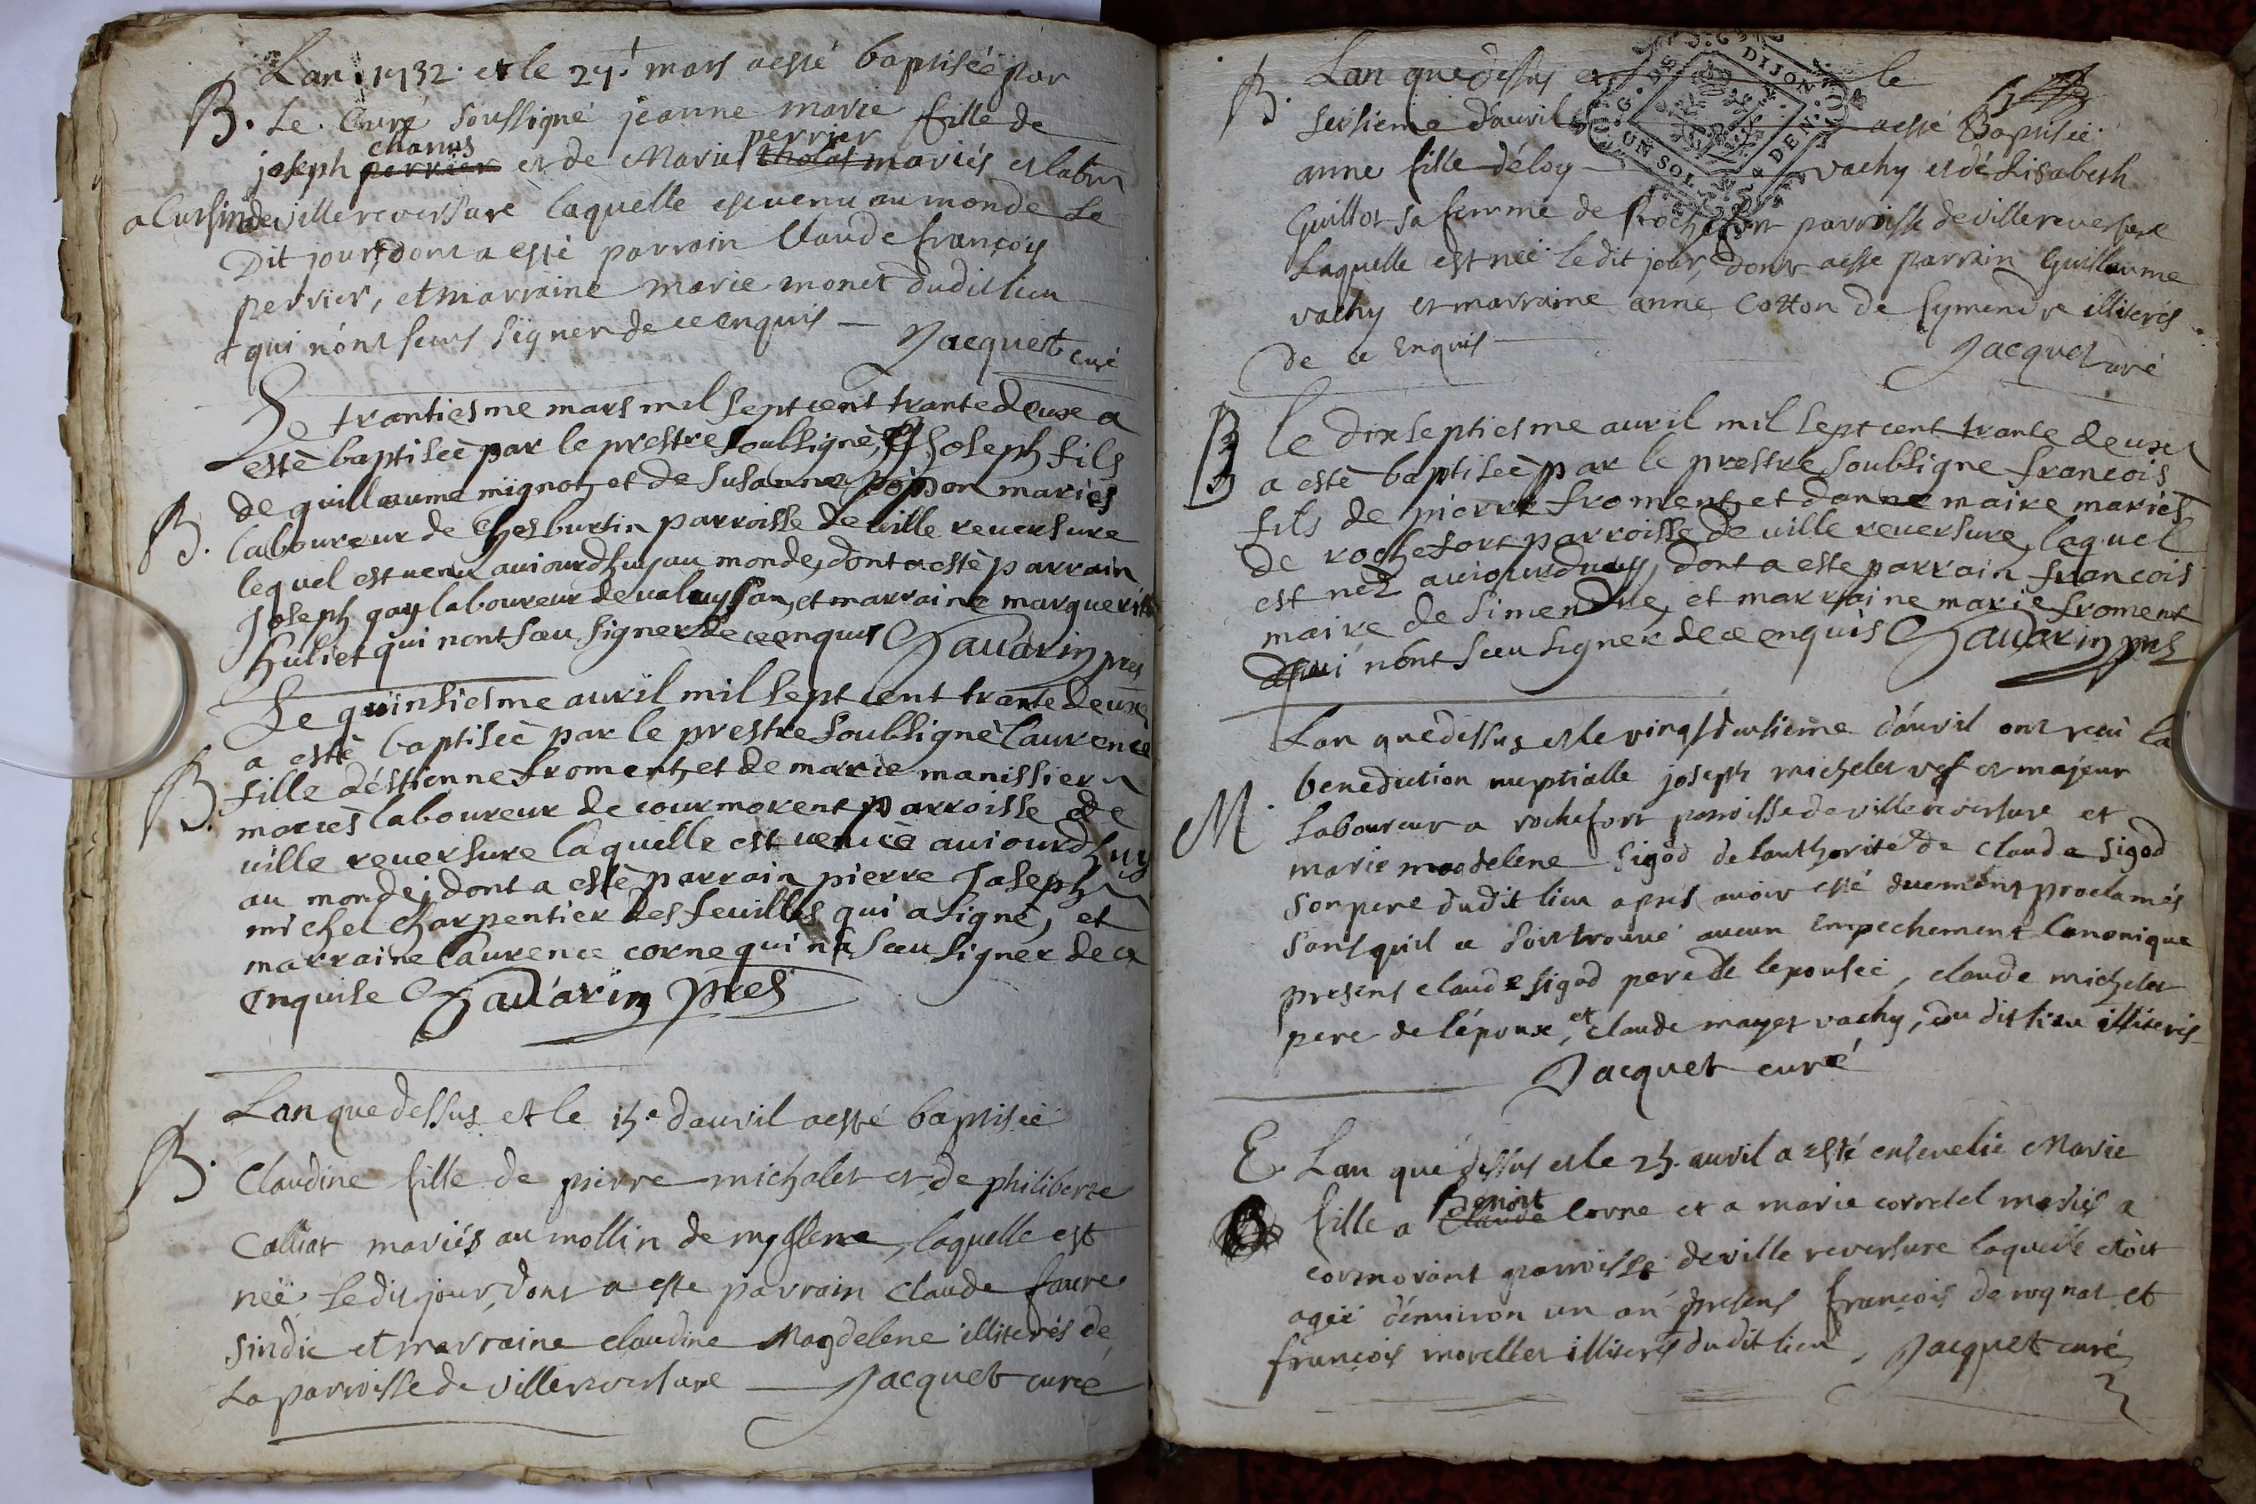 Lan 1732. et le 27.e mars a esté baptisée par
B. Le Curé soussigné jeanne marie fille de
chanus perrier
joseph perrier et de Marie tholas mariés et labr
a Cursin de villereversure laquelle est venu au monde Le
Dit jour, dont a esté parrain Claude françois
perrier, et marraine marie monet dudit lieu
qui n'ont sceus signer de ce enquis — Jacquet curé
Le trantiesme mars mil sept cent trante deux a
esté baptiseè par le prestre soubsigné, Joseph fils
de guillaume mignot, et de Susanne poison mariès
B. laboureur de Chesburtin parroisse de uille reuersure
lequel est uenu auiourdhuy au monde, dont a estè parrain
Joseph gay laboureur de ualuysson, et marraine marguerite
huliet qui nont sceu signer de ce enquis Chauarin pres
Le quinsiesme auril mil sept cent trante deuxe
a esté baptiseè par le prestre soubsignè laurence
B. fille déstienne froment, et de marie manissier
mariès laboureur de courmorent parroisse de
uille reuersure laquelle est uenue auiourdhuy
au monde, dont a estè parrain pierre Joseph
michel charpentier des feuilles qui a signé, et
marraine laurence corne qui na sceu signer de ce
enquise Chauarin pres
Lan que dessus et le 15.e d'auril a esté baptisée
B. Claudine fille de pierre michalet et de philiberte
Calliat mariés au mollin de , laquelle est
née Ledit jour, dont a esté parrain Claude faure
sindic et marraine claudine Magdelene illiterés de
La parroisse de villereversure — Jacquet curé
B. Lan que dessus et le
seisieme d'auril a esté Baptisée
anne fille d'éloy vachy et d'élisabeth
Guillot sa femme de Rochefort parroisse de villereversure
Laquelle est née le dit jour, dont a esté parrain Guillaume
vachy et marraine anne Cotton de symendre illiterés
De ce Enquis — Jacquet curé
B le dixseptiesme auril mil sept cent trante deuxe
a esté baptiseè par le prestre soubsigne francois
fils de pierre froment, et danne maire mariès
de rochefort parroisse de uille reuersure, laquel
est nez auiourdhuy, dont a este parrain francois
maire de simendre, et marraine marie froment
qui nont sceu signer de ce enquis Chauarin pres
Lan que dessus et le vingt deusieme d'auril ont receu la
benediction nuptialle joseph michelet vef et majeur
M. Laboureur a rochefort parroisse de villereversure et
marie magdelene sigod de lauthorité de claude sigod
son pere dudit lieu apres auoir esté duement proclamés
sans quil ce soit trouué aucun empechement Canonique
presens claude sigod pere de lepousée, claude michelet
et
pere de l'époux, claude mayet vachy, du dit lieu illiterés
Jacquet curé
E. Lan que dessus et le 25. auril a esté enseuelie Marie
Benoit
fille a Claude Corne et a marie corretel mariés a
cormorant parroisse de ville reversure laquelle etoit
agée d'enuiron un an presens françois derognat et
françois morellet illiterés dudit lieu, Jacquet curé